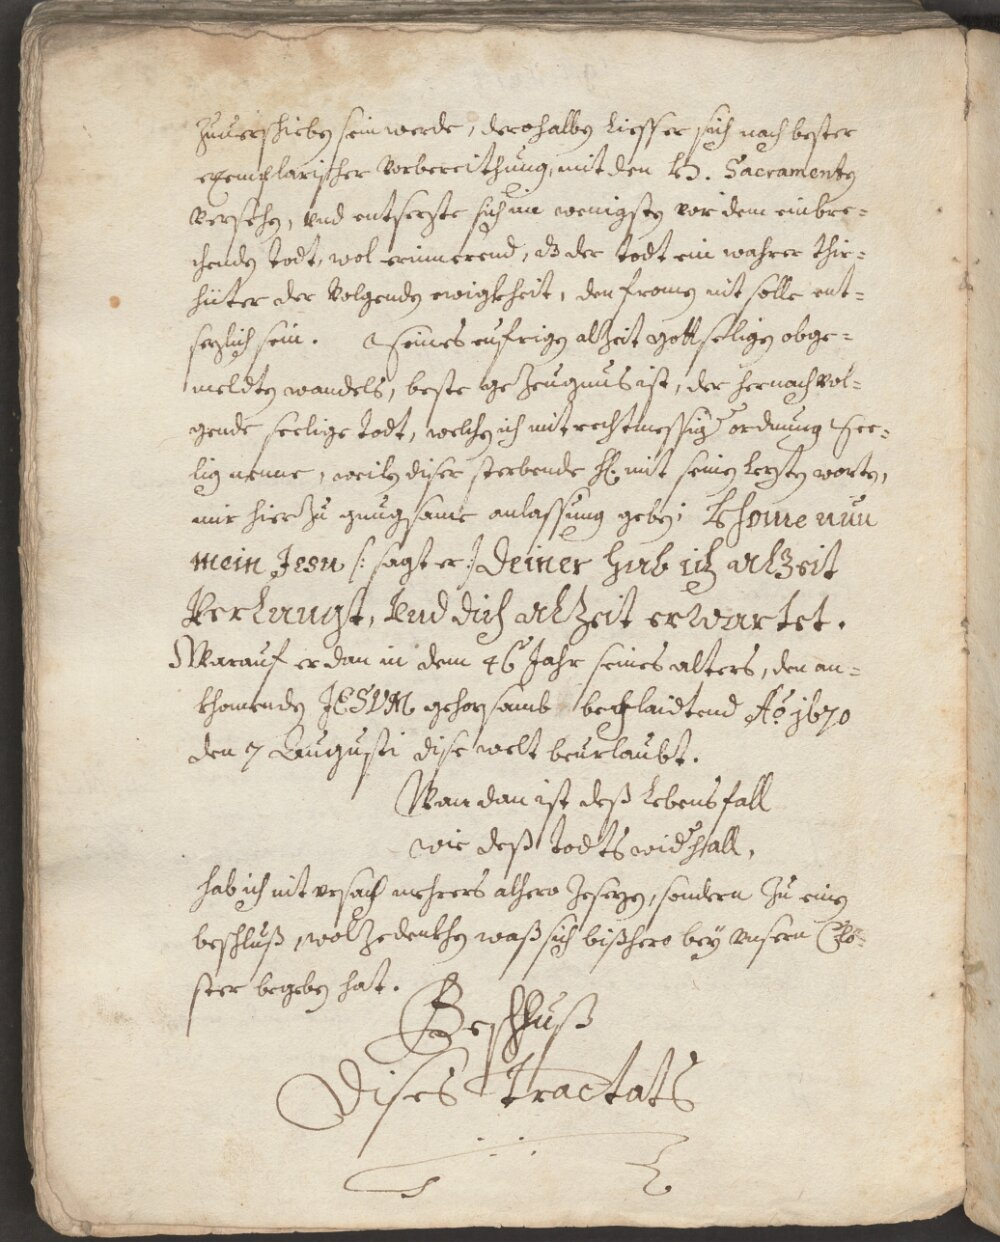 Zuuerschieben sein werde, derohalben liesse er sich nach bester
exemplarischer Vorbereithung, mit den H. Sacramenten
versehen, vnd entsezte sich im wenigsten vor dem einbre-
chenden todt, wol erinnerend, dz der todt ein wahrer thir-
hüter der Volgenden ewigkheit, den fromen nit solle ent-
sezlich sein. Seines eufrigen alzeit gottseligen obge-
meldten wandels, beste gezeugnus ist, der hernach vol-
gende seelige todt, welchen ich mit rechtmessiger ordnung See-
lig nenne, weilen diser sterbende H. mit seinen lezten worten,
mir hierzu gnugsame anlassung geben; Khome nun
mein Jesu /: sagt er :/ deiner hab ich alzeit
Verlangt, Vnd dich alzeit erwartet.
Warauf er dan in dem 46 Jahr seines alters, den an-
khomenden JESVM gehorsamb beglaidtend Ao 1670
den 7 Augusti dise welt beurlaubt.
Wan dan ist deß lebens fall
wie deß todts widerhall,
hab ich nit vrsach mehrers alhero zesezen, sondern zu einen
beschluß, wol zedenkhen waß sich bißhero bey vnsern Clo-
ster begeben hat.
Beschluß
Dises Tractats